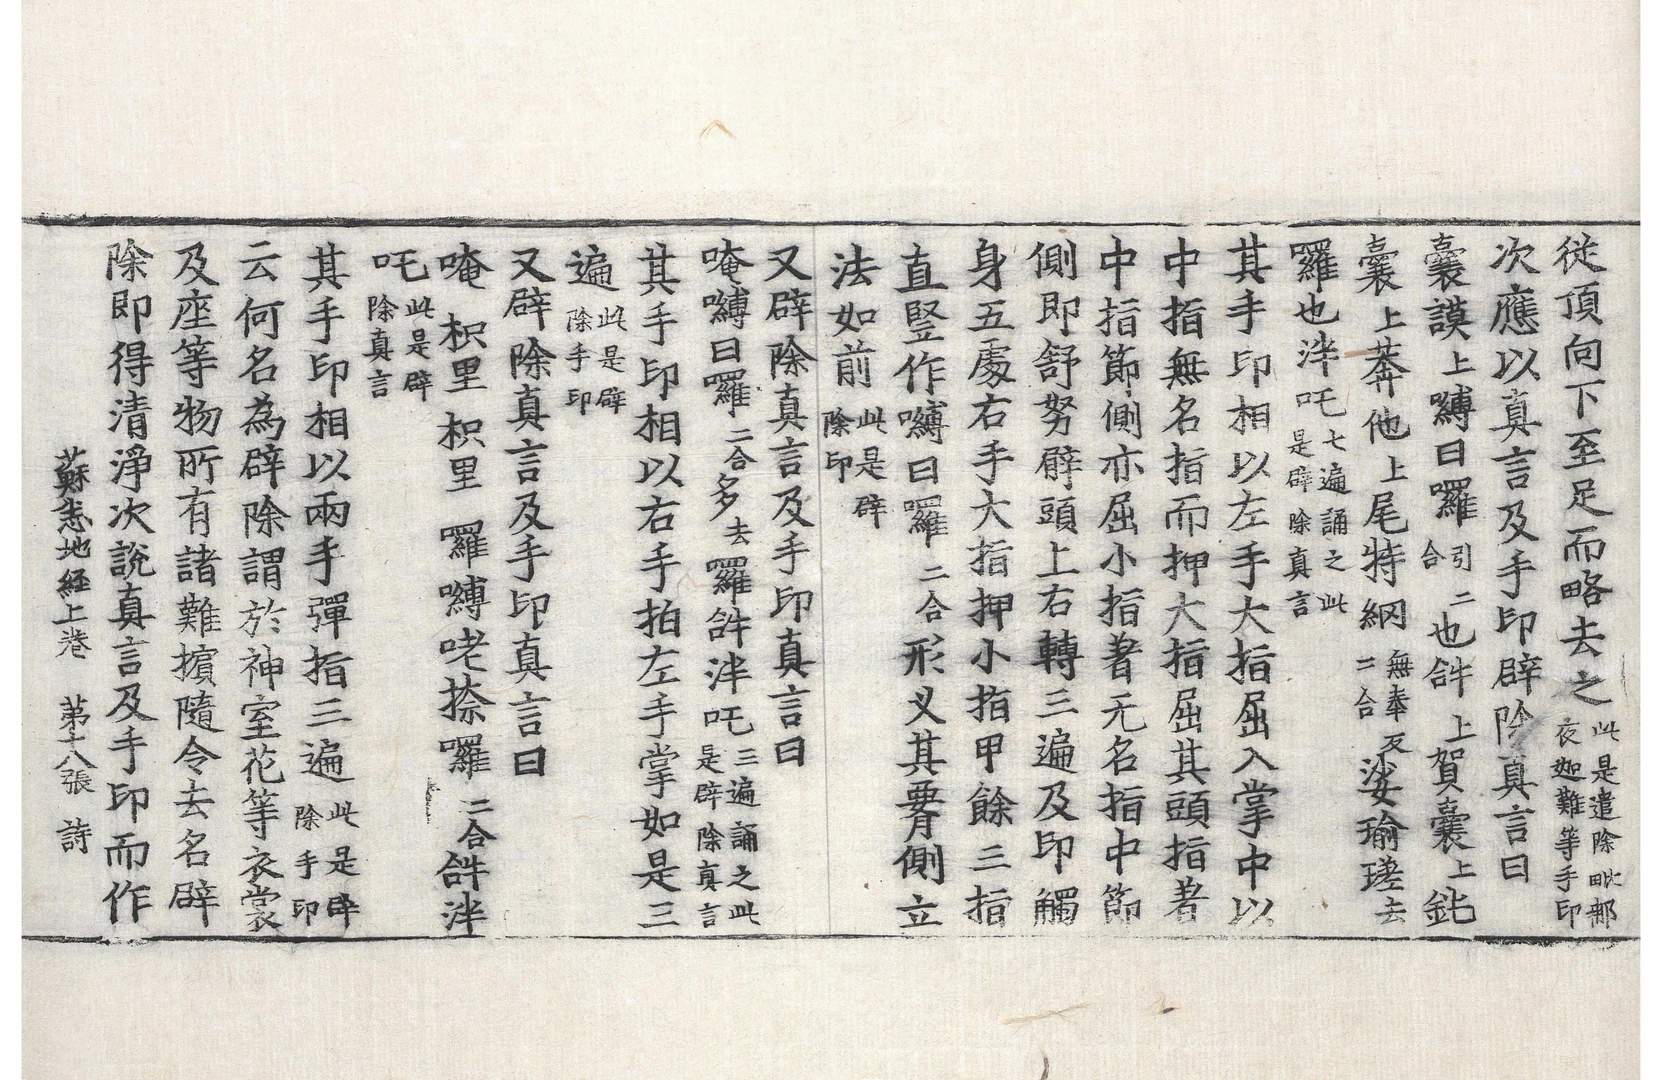 從頂向下至足而略去之此是遣除毗那夜迦難等手印
次應以真言及手印辟除真言曰
囊謨上嚩日囉引二合也餁上賀囊上鈋
囊上莽他上尾特網無奉反二合娑瑜瑳去
囉也泮吒七遍誦之此是辟除真言
其手印相以左手大指屈入掌中以
中指無名指而押大指屈其頭指著
中指節側亦屈小指著无名指中節
側即舒努臂頭上右轉三遍及印觸
身五處右手大指押小指甲餘三指
直豎作嚩日囉二合形义其𦝫側立
法如前此是辟除印
又辟除真言及手印真言曰
唵嚩日囉二合多去羅餁泮吒三遍誦之此是辟除真言
其手印相以右手拍左手掌如是三
遍此是辟除手印
又辟除真言及手印真言曰
唵枳里枳里囉嚩咾捺囉二合餁泮
吒此是辟除真言
其手印相以兩手彈指三遍此是辟除手印
云何名為辟除謂於神室花等衣裳
及座等物所有諸難擯隨令去名辟
除即得清淨次說真言及手印而作
蘇悉地經上卷 第十八張 詩